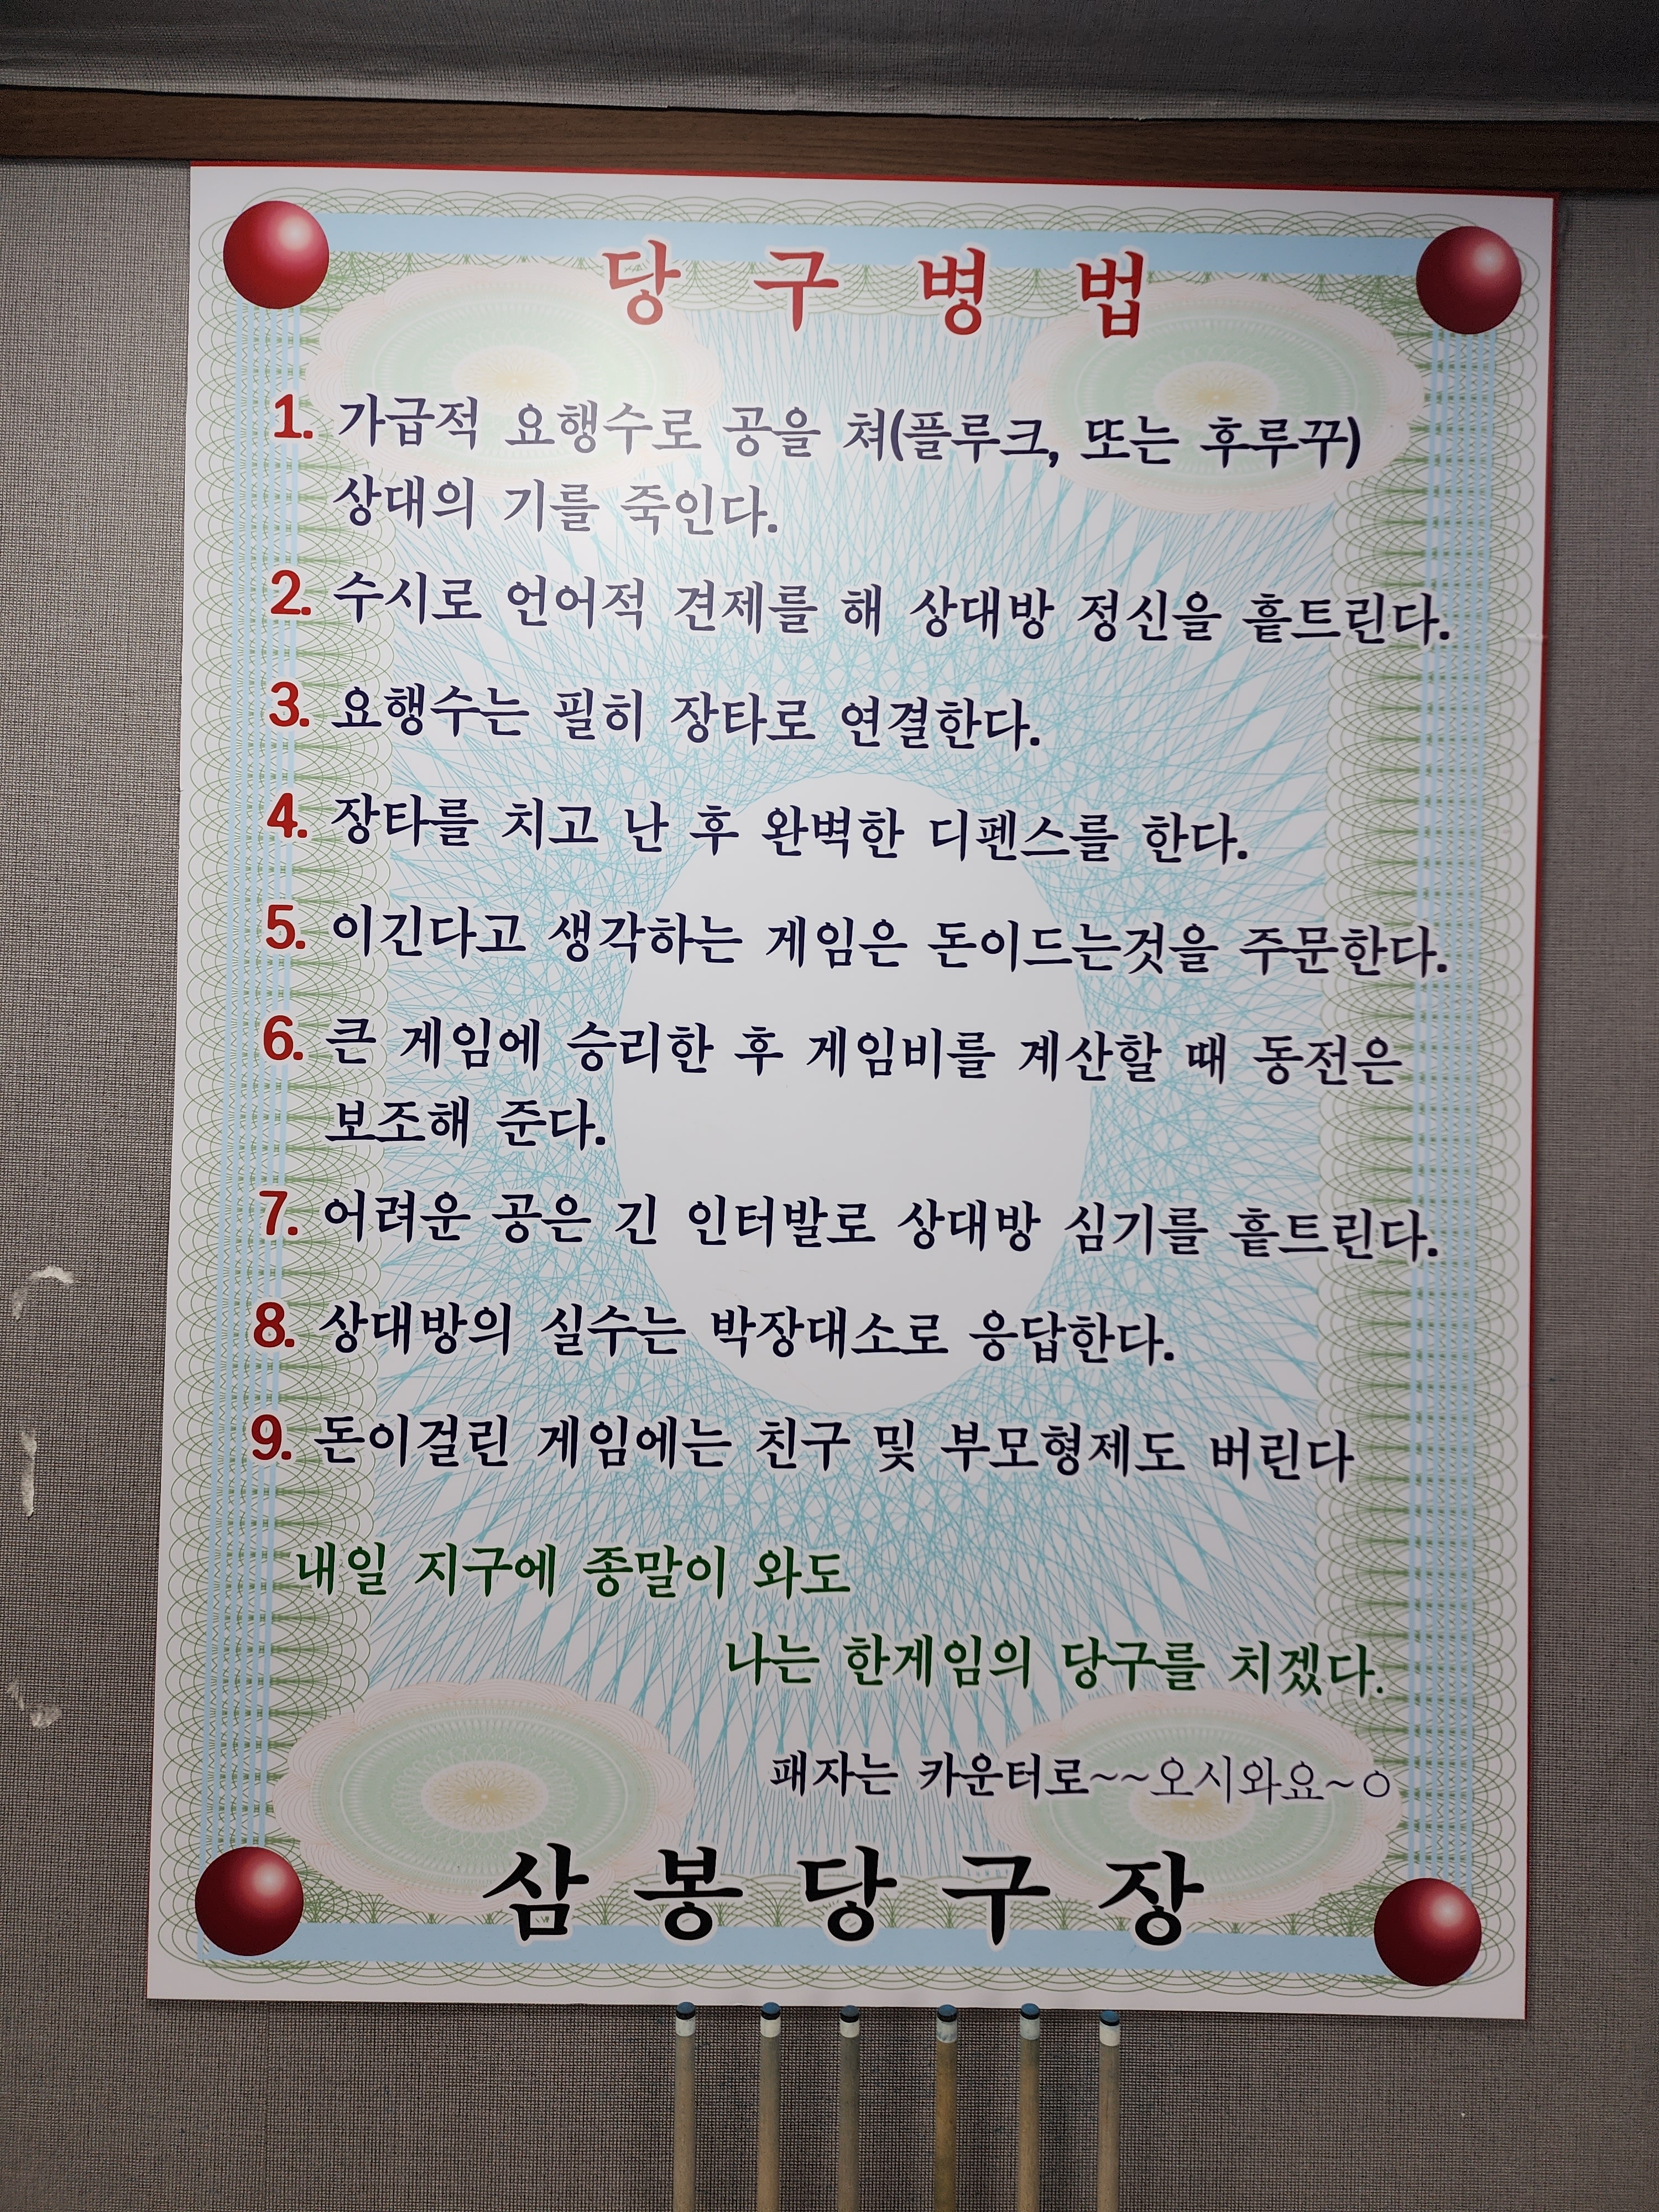 당 구 병 법
1. 가급적 요행수로 공을 쳐(플루크, 또는 후루꾸)
상대의 기를 죽인다.
2. 수시로 언어적 견제를 해 상대방 정신을 흩트린다.
3. 요행수는 필히 장타로 연결한다.
4. 장타를 치고 난 후 완벽한 디펜스를 한다.
5. 이긴다고 생각하는 게임은 돈이드는것을 주문한다.
6. 큰 게임에 승리한 후 게임비를 계산할 때 동전은
보조해 준다.
7. 어려운 공은 긴 인터발로 상대방 심기를 흩트린다.
8. 상대방의 실수는 박장대소로 응답한다.
9. 돈이걸린 게임에는 친구 및 부모형제도 버린다
내일 지구에 종말이 와도
나는 한게임의 당구를 치겠다.
패자는 카운터로~~오시와요~ㅇ
삼봉당구장